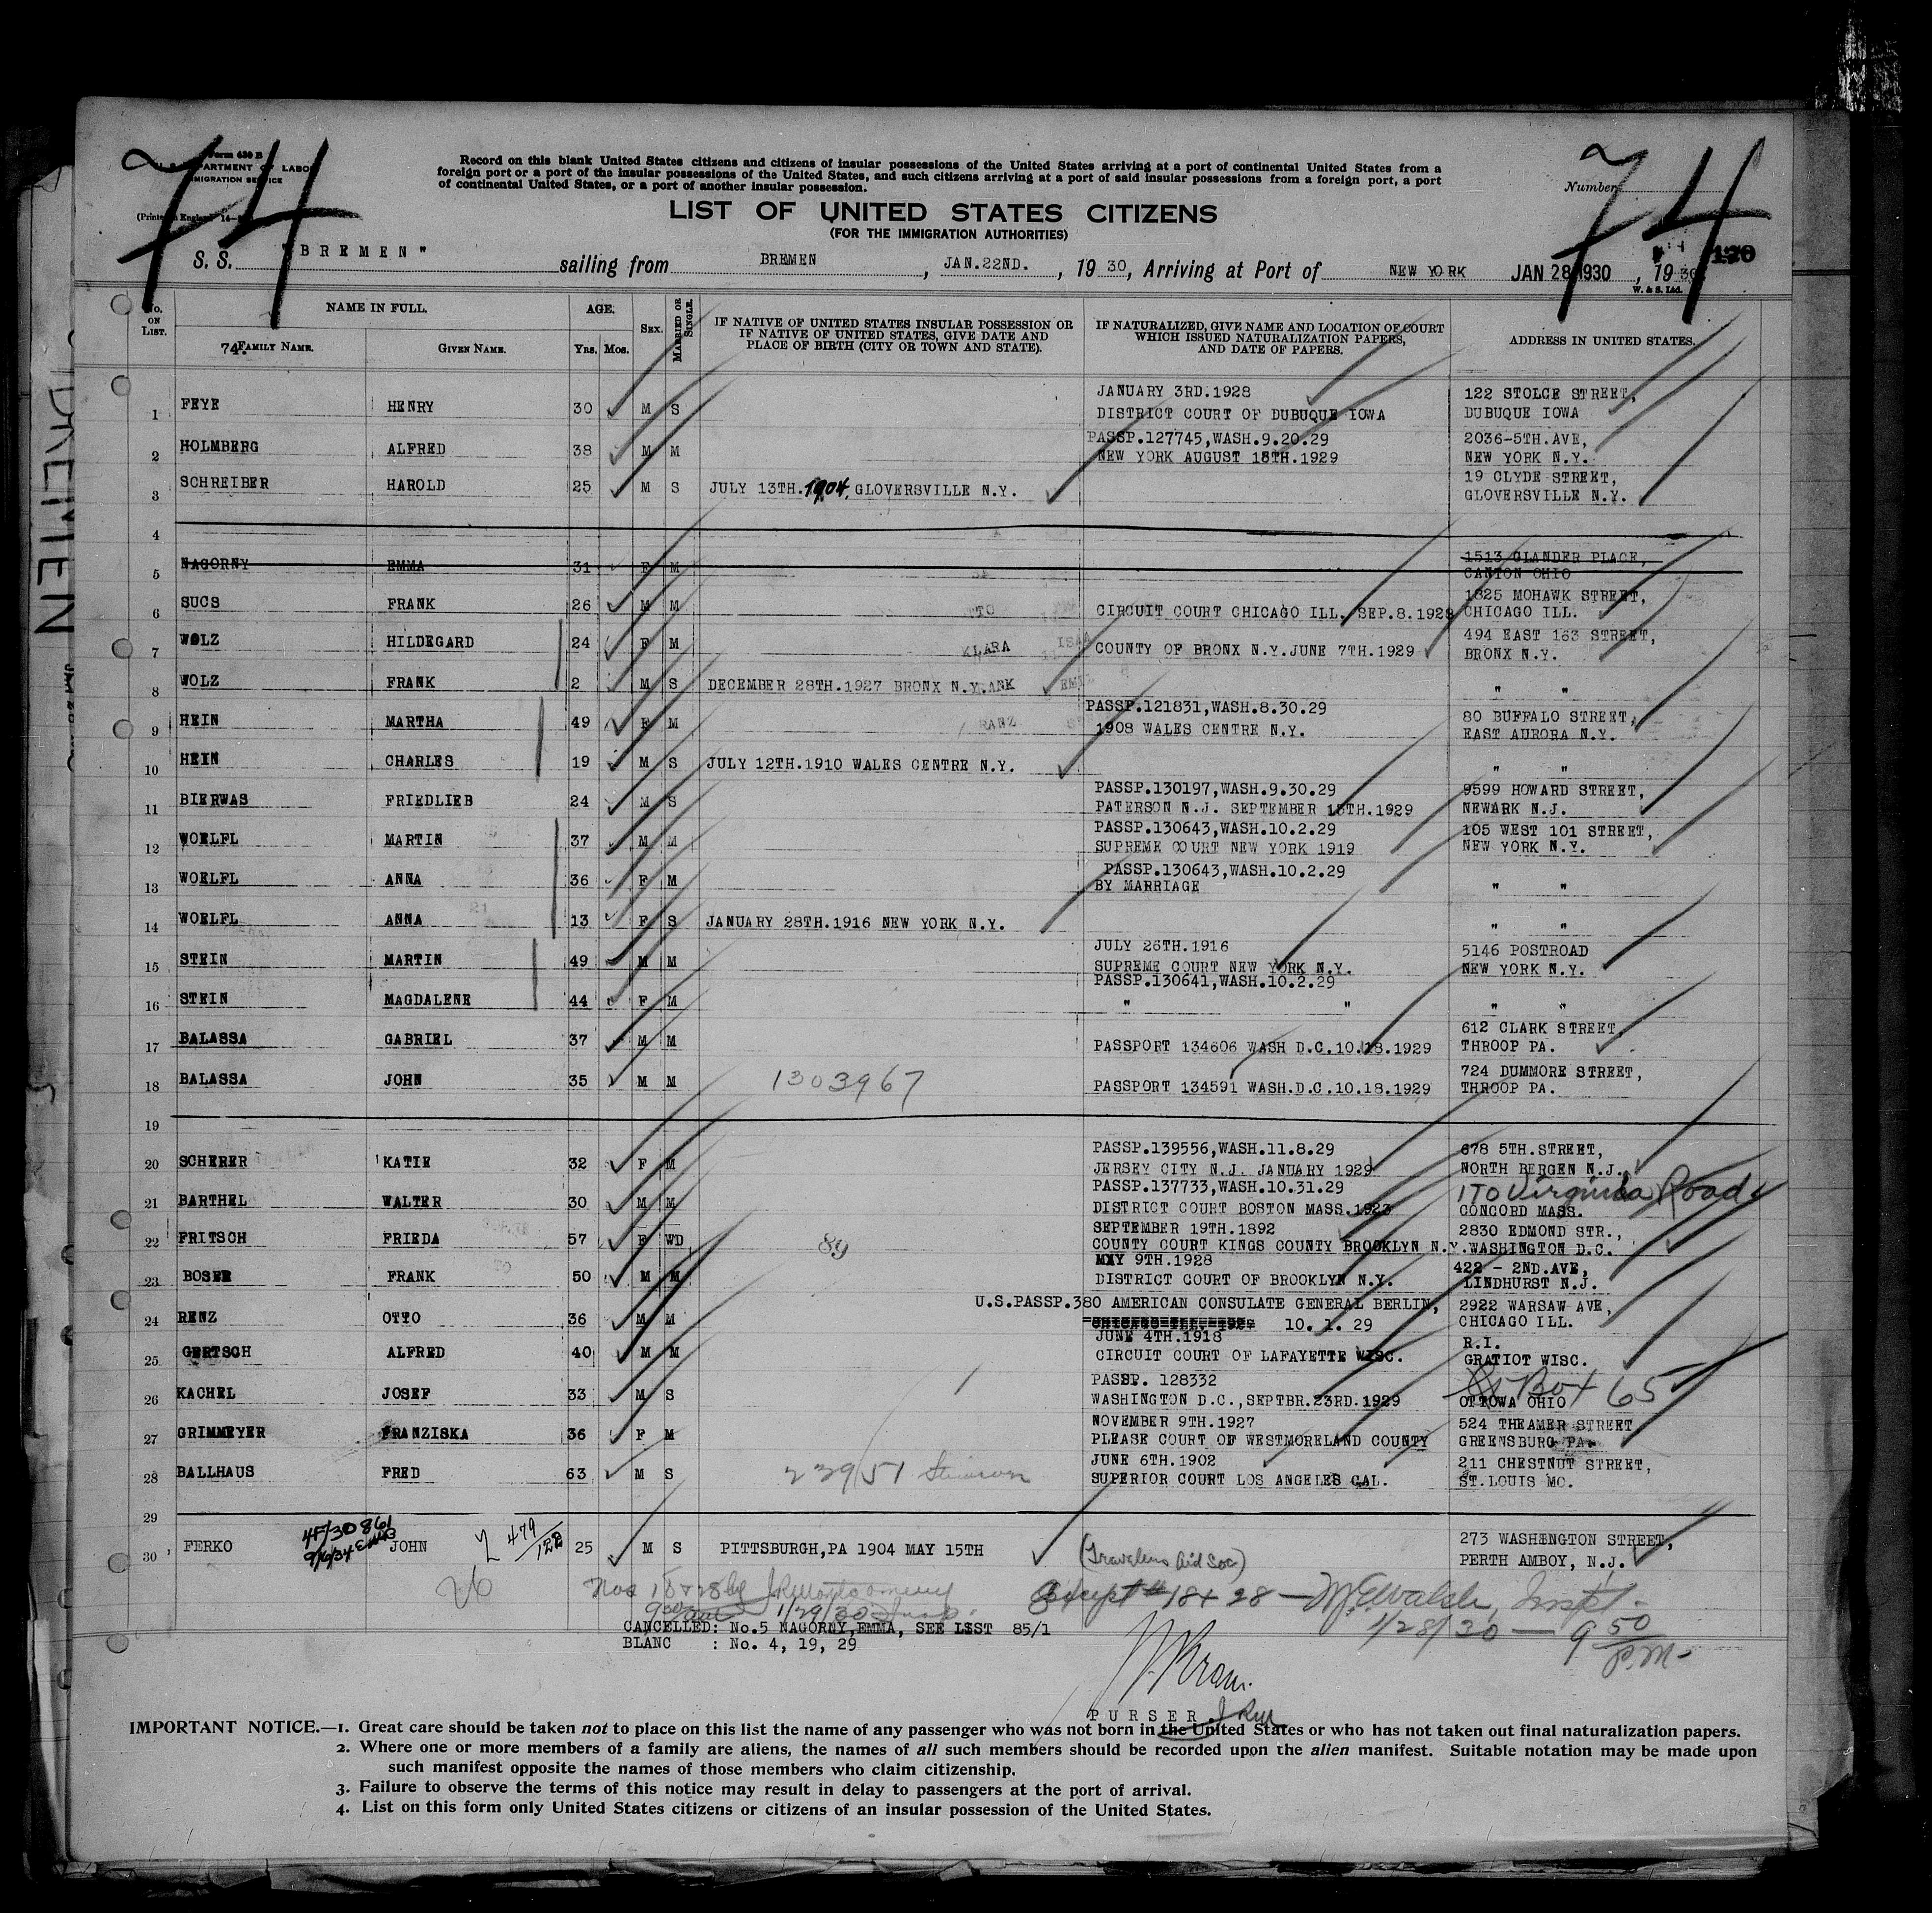 74
74
Form 630 B
DEPARTMENT OF LABOR
IMMIGRATION SERVICE
Record on this blank United States citizens and citizens of insular possessions of the United States arriving at a port of continental United States from a
foreign port or a port of the insular possessions of the United States, and such citizens arriving at a port of said insular possessions from a foreign port, a port
of continental United States, or a port of another insular possession.
Number
LIST OF UNITED STATES CITIZENS
(FOR THE IMMIGRATION AUTHORITIES)
S. S. "BREMEN" sailing from BREMEN, JAN.22ND., 19 30, Arriving at Port of NEW YORK JAN 28 1930, 19 30 120
W. & S. Ltd.
No. ON LIST. NAME IN FULL. AGE. SEX. MARRIED OR SINGLE. IF NATIVE OF UNITED STATES INSULAR POSSESSION OR IF NATIVE OF UNITED STATES, GIVE DATE AND PLACE OF BIRTH (CITY OR TOWN AND STATE). IF NATURALIZED, GIVE NAME AND LOCATION OF COURT WHICH ISSUED NATURALIZATION PAPERS, AND DATE OF PAPERS. ADDRESS IN UNITED STATES.
74. FAMILY NAME. GIVEN NAME. Yrs. Mos.
JANUARY 3RD.1928 122 STOLCE STREET,
1 FEYE HENRY 30 M S DISTRICT COURT OF DUBUQUE IOWA DUBUQUE IOWA
PASSP.127745,WASH.9.20.29 2036-5TH.AVE,
2 HOLMBERG ALFRED 38 M M NEW YORK AUGUST 15TH.1929 NEW YORK N.Y.
19 CLYDE STREET,
3 SCHREIBER HAROLD 25 M S JULY 13TH.1904, GLOVERSVILLE N.Y. GLOVERSVILLE N.Y.
4
1513 GLANDER PLACE,
5 NAGORNY EMMA 31 F M CANTON OHIO
1625 MOHAWK STREET,
6 SUCS FRANK 26 M M CIRCUIT COURT CHICAGO ILL. SEP.8.1928 CHICAGO ILL.
494 EAST 163 STREET,
7 WOLZ HILDEGARD 24 F M COUNTY OF BRONX N.Y.JUNE 7TH.1929 BRONX N.Y.
8 WOLZ FRANK 2 M S DECEMBER 28TH.1927 BRONX N.Y. " "
PASSP.121831,WASH.8.30.29 80 BUFFALO STREET,
9 HEIN MARTHA 49 F M 1908 WALES CENTRE N.Y. EAST AURORA N.Y.
10 HEIN CHARLES 19 M S JULY 12TH.1910 WALES CENTRE N.Y. " "
PASSP.130197,WASH.9.30.29 9599 HOWARD STREET,
11 BIERWAS FRIEDLIEB 24 M S PATERSON N.J. SEPTEMBER 15TH.1929 NEWARK N.J.
PASSP.130643,WASH.10.2.29 105 WEST 101 STREET,
12 WOELFL MARTIN 37 M M SUPREME COURT NEW YORK 1919 NEW YORK N.Y.
PASSP.130643,WASH.10.2.29
13 WOELFL ANNA 36 F M BY MARRIAGE " "
14 WOELFL ANNA 13 F S JANUARY 28TH.1916 NEW YORK N.Y. " "
JULY 26TH.1916 5146 POSTROAD
15 STEIN MARTIN 49 M M SUPREME COURT NEW YORK N.Y. NEW YORK N.Y.
PASSP.130641,WASH.10.2.29
16 STEIN MAGDALENE 44 F M " " " "
612 CLARK STREET,
17 BALASSA GABRIEL 37 M M PASSPORT 134606 WASH D.C.10.18.1929 THROOP PA.
724 DUMMORE STREET,
18 BALASSA JOHN 35 M M 1303967 PASSPORT 134591 WASH.D.C.10.18.1929 THROOP PA.
19
PASSP.139556,WASH.11.8.29 678 5TH.STREET,
20 SCHERER KATIE 32 F M JERSEY CITY N.J. JANUARY 1929 NORTH BERGEN N.J.
PASSP.137733,WASH.10.31.29 170 Virginia Road
21 BARTHEL WALTER 30 M M DISTRICT COURT BOSTON MASS.1923 CONCORD MASS.
SEPTEMBER 19TH.1892 2830 EDMOND STR.,
22 FRITSCH FRIEDA 57 F WD 89 COUNTY COURT KINGS COUNTY BROOKLYN N.Y. WASHINGTON D.C.
MAY 9TH.1928 422 - 2ND.AVE,
23 BOSER FRANK 50 M M DISTRICT COURT OF BROOKLYN N.Y. LINDHURST N.J.
U.S.PASSP.380 AMERICAN CONSULATE GENERAL BERLIN, 2922 WARSAW AVE,
24 RENZ OTTO 36 M M 10. 1. 29 CHICAGO ILL.
JUNE 4TH.1918 R.I.
25 GERTSCH ALFRED 40 M M CIRCUIT COURT OF LAFAYETTE WISC. GRATIOT WISC.
PASSP. 128332 Box 65
26 KACHEL JOSEF 33 M S WASHINGTON D.C.,SEPTBR.23RD.1929 OTTOWA OHIO
NOVEMBER 9TH.1927 524 THEAMER STREET
27 GRIMMEYER FRANZISKA 36 F M PLEASE COURT OF WESTMORELAND COUNTY GREENSBURG PA.
JUNE 6TH.1902 211 CHESTNUT STREET,
28 BALLHAUS FRED 63 M S 239151 SUPERIOR COURT LOS ANGELES CAL. ST.LOUIS MO.
29
4F/30861 273 WASHINGTON STREET,
30 FERKO JOHN 2 479/122 25 M S PITTSBURGH,PA 1904 MAY 15TH (Travelers Aid Soc) PERTH AMBOY, N.J.
26 Nos 18 & 28 by Except # 18 + 28 — Inspt.
1/29/30 1/28/30 — 9 50 P.M-
CANCELLED: No.5 NAGORNY,EMMA, SEE LIST 85/1
BLANC : No. 4, 19, 29
PURSER
IMPORTANT NOTICE.—1. Great care should be taken not to place on this list the name of any passenger who was not born in the United States or who has not taken out final naturalization papers.
2. Where one or more members of a family are aliens, the names of all such members should be recorded upon the alien manifest. Suitable notation may be made upon
such manifest opposite the names of those members who claim citizenship.
3. Failure to observe the terms of this notice may result in delay to passengers at the port of arrival.
4. List on this form only United States citizens or citizens of an insular possession of the United States.